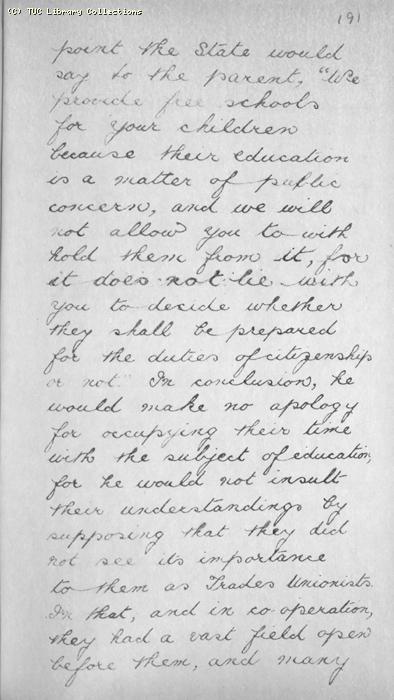 (C) TUC Library Collections
191
point the State would
say to the parent, "We
provide free schools
for your children
because their education
is a matter of public
concern, and we will
not allow you to with
hold them from it, for
it does not lie with
you to decide whether
they shall be prepared
for the duties of citizenship
or not." In conclusion, he
would make no apology
for occupying their time
with the subject of education,
for he would not insult
their understandings by
supposing that they did
not see its importance
to them as Trades Unionists.
In that, and in co-operation,
they had a vast field open
before them, and many